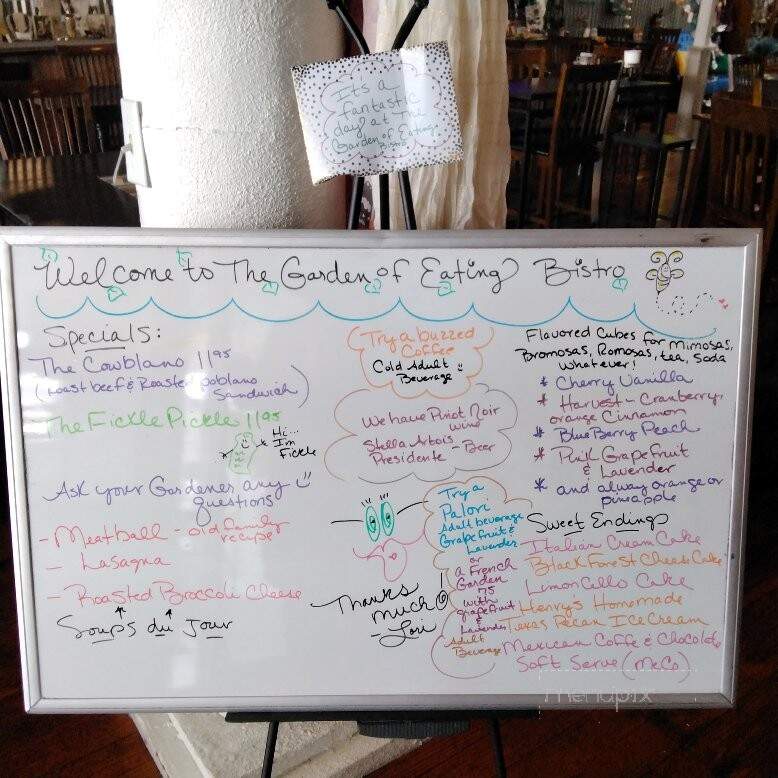 It's a
fantastic
day at The
Garden of Eating
Bistro
Welcome to The Garden of Eating Bistro
Specials:
The Cowblano 11.95
(roast beef & Roasted poblano
Sandwich)
The Fickle Pickle 11.95
Hi...
I'm
Fickle
Ask your Gardener any
questions
- Meatball - old family
recipe
- Lasagna
- Roasted Broccoli Cheese
Soups du Jour
Try a buzzed
Coffee
Cold Adult
Beverage
We have Pinot Noir
wine
Stella Artois
Presidente - Beer
Thanks
much!
- Lori
Try a
Palori
Adult beverage
Grapefruit &
Lavender
or
a French
Garden
75
with
grapefruit
&
Lavender
Adult
Beverage
Flavored Cubes for mimosas,
Bromosas, Romosas, tea, Soda
whatever!
* Cherry Vanilla
* Harvest - Cranberry,
orange Cinnamon
* BlueBerry Peach
* Pink Grapefruit
& Lavender
* and alway orange or
pineapple
Sweet Endings
Italian Cream Cake
Black Forest Cheese Cake
Limoncello Cake
Henry's Homemade
Texas Pecan Ice Cream
Mexican Coffe & Chocolate
Soft Serve (MeCo)
menupix